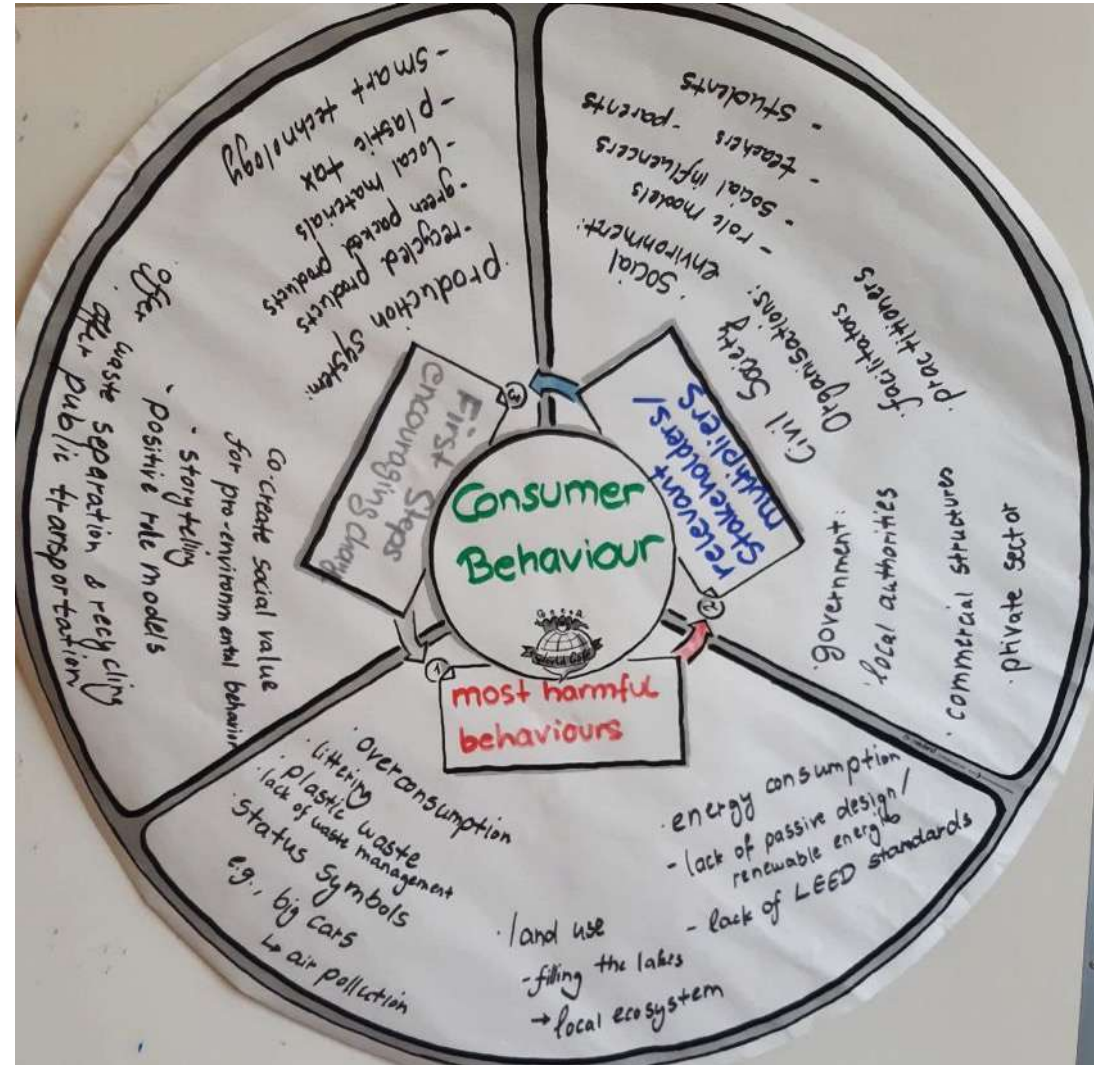 Consumer
Behaviour
World Café
1
most harmful
behaviours
· overconsumption
· littering
· plastic waste
· lack of waste management
· Status Symbols
e.g., big cars
↳ air pollution
· land use
- filling the lakes
→ local ecosystem
· energy consumption
- lack of passive design/
renewable energie
- lack of LEED standards
2
relevant
stakeholders/
multipliers
· private sector
· commercial structures
· government:
· local authorities
Civil Society
Organisations:
facilitators
· practitioners
· Social
environment:
- role models
- Social influencers
- teachers - parents
- students
3
First Steps
encouraging change
production system:
- recycled products
- green packed products
- local materials
- plastic tax
- smart technology
Co-create social value
for pro-environmental behavior
· storyteling
· positive role models
offer waste separation & recycling
offer public transportation